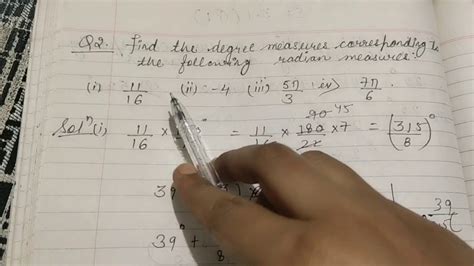 Q2. Find the degree measures corresponding to
the following radian measures:
(i) 11/16 (ii) -4 (iii) 5π/3 iv) 7π/6.
Solⁿ(i) 11/16 × ° = 11/16 × 180 × 7/22 = (315/8)°
90 45
39
39° +
8
39